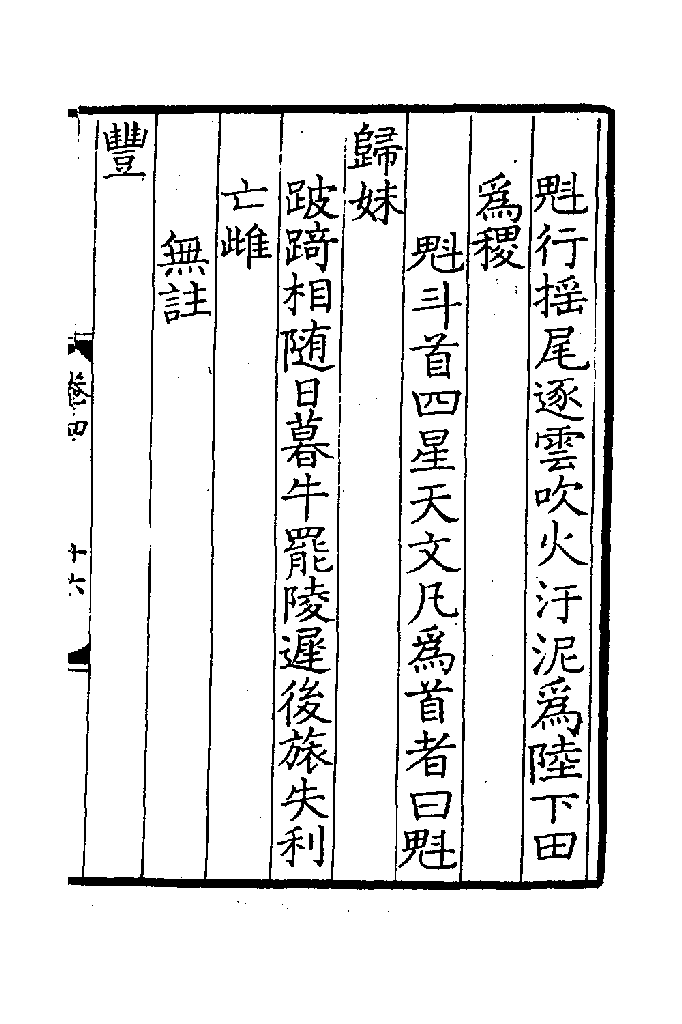 魁行揺尾逐雲吹火汙泥爲陸下田
爲稷
魁斗首四星天文凡爲首者曰魁
歸妹
跛踦相随日暮牛罷陵遲後旅失利
亡雌
無註
豐
卷四
十六